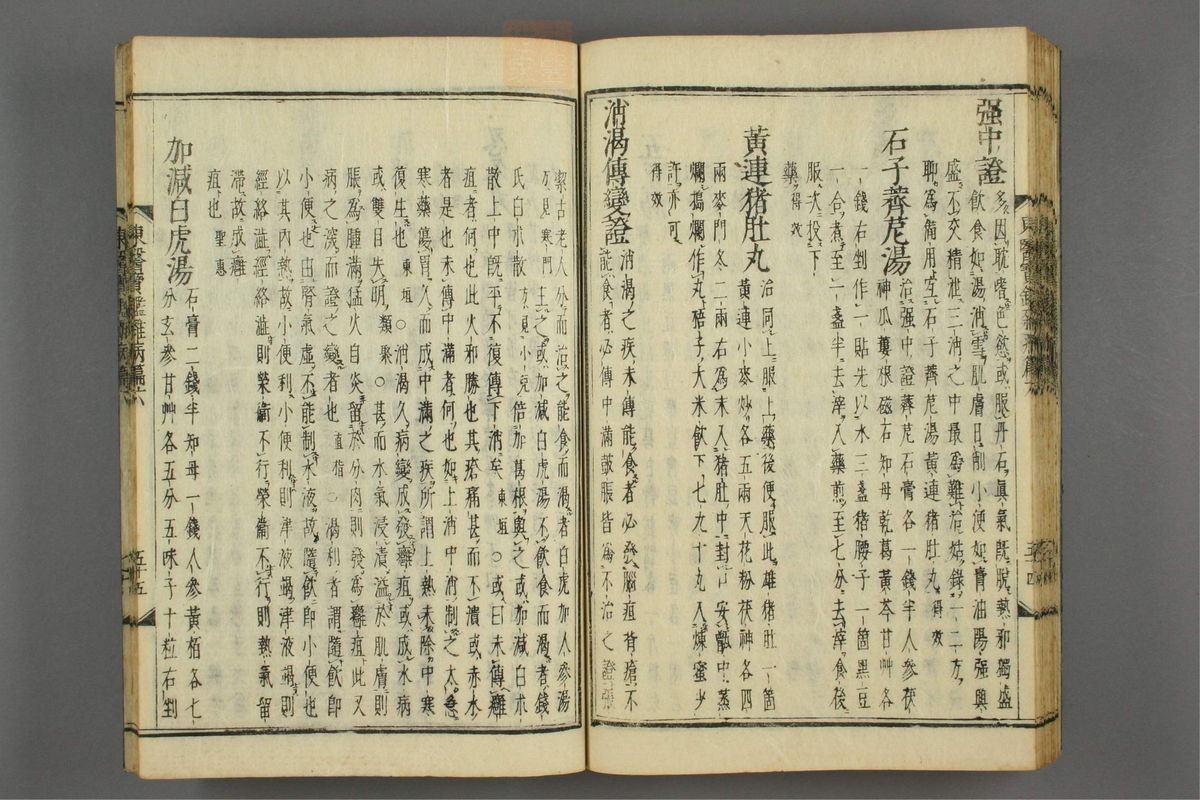 强中證 多因耽嗜色慾或服丹石眞氣旣脫熱邪獨盛
飮食如湯消雪肌膚日削小便如膏油陽强興
盛不交精泄三消之中最爲難治姑錄一二方
聊爲備用宜石子薺苨湯黃連猪肚丸得效
石子薺苨湯 治强中證薺苨石膏各一錢半人參茯
神瓜蔞根磁石知母乾葛黃芩甘艸各
一錢右剉作一貼先以水三盞猪腰子一箇黑豆
一合煮至一盞半去滓入藥煎至七分去滓食後
服次投下
藥得效
黃連猪肚丸 治同上服上藥後便服此雄猪肚一箇
黃連小麥炒各五兩天花粉茯神各四
兩麥門冬二兩右爲末入猪肚中封口安甑中蒸
爛搗爛作丸梧子大米飮下七九十丸入煉蜜少
許亦可
得效
消渴傳變證 消渴之疾未傳能食者必發腦疽背瘡不
能食者必傳中滿鼓脹皆爲不治之證張
潔古老人分而治之能食而渴者白虎加人參湯
方見寒門主之或加減白虎湯不飮食而渴者錢
氏白朮散方見小兒倍加葛根與之或加減白朮
散上中旣平不復傳下消矣東垣○或曰未傳癰
疽者何也此火邪勝也其瘡痛甚而不潰或赤水
者是也未傳中滿者何也如上消中消制之太急
寒藥傷胃久而成中滿之疾所謂上熱未除中寒
復生也東垣○消渴久病變成發癰疽或成水病
或雙目失明類聚○甚而水氣浸漬溢於肌膚則
脹爲腫滿猛火自炎留於分肉則發爲癰疽此又
病之深而證之變者也直指○渴利者謂隨飮卽
小便也由腎氣虛不能制水液故隨飮卽小便也
以其內熱故小便利小便利則津液竭津液竭則
經絡澁經絡澁則榮衞不行榮衞不行則熱氣留
滯故成癰
疽也聖惠
加減白虎湯 石膏二錢半知母一錢人參黃栢各七
分玄參甘艸各五分五味子十粒右剉
東醫寶鑑雜病篇六